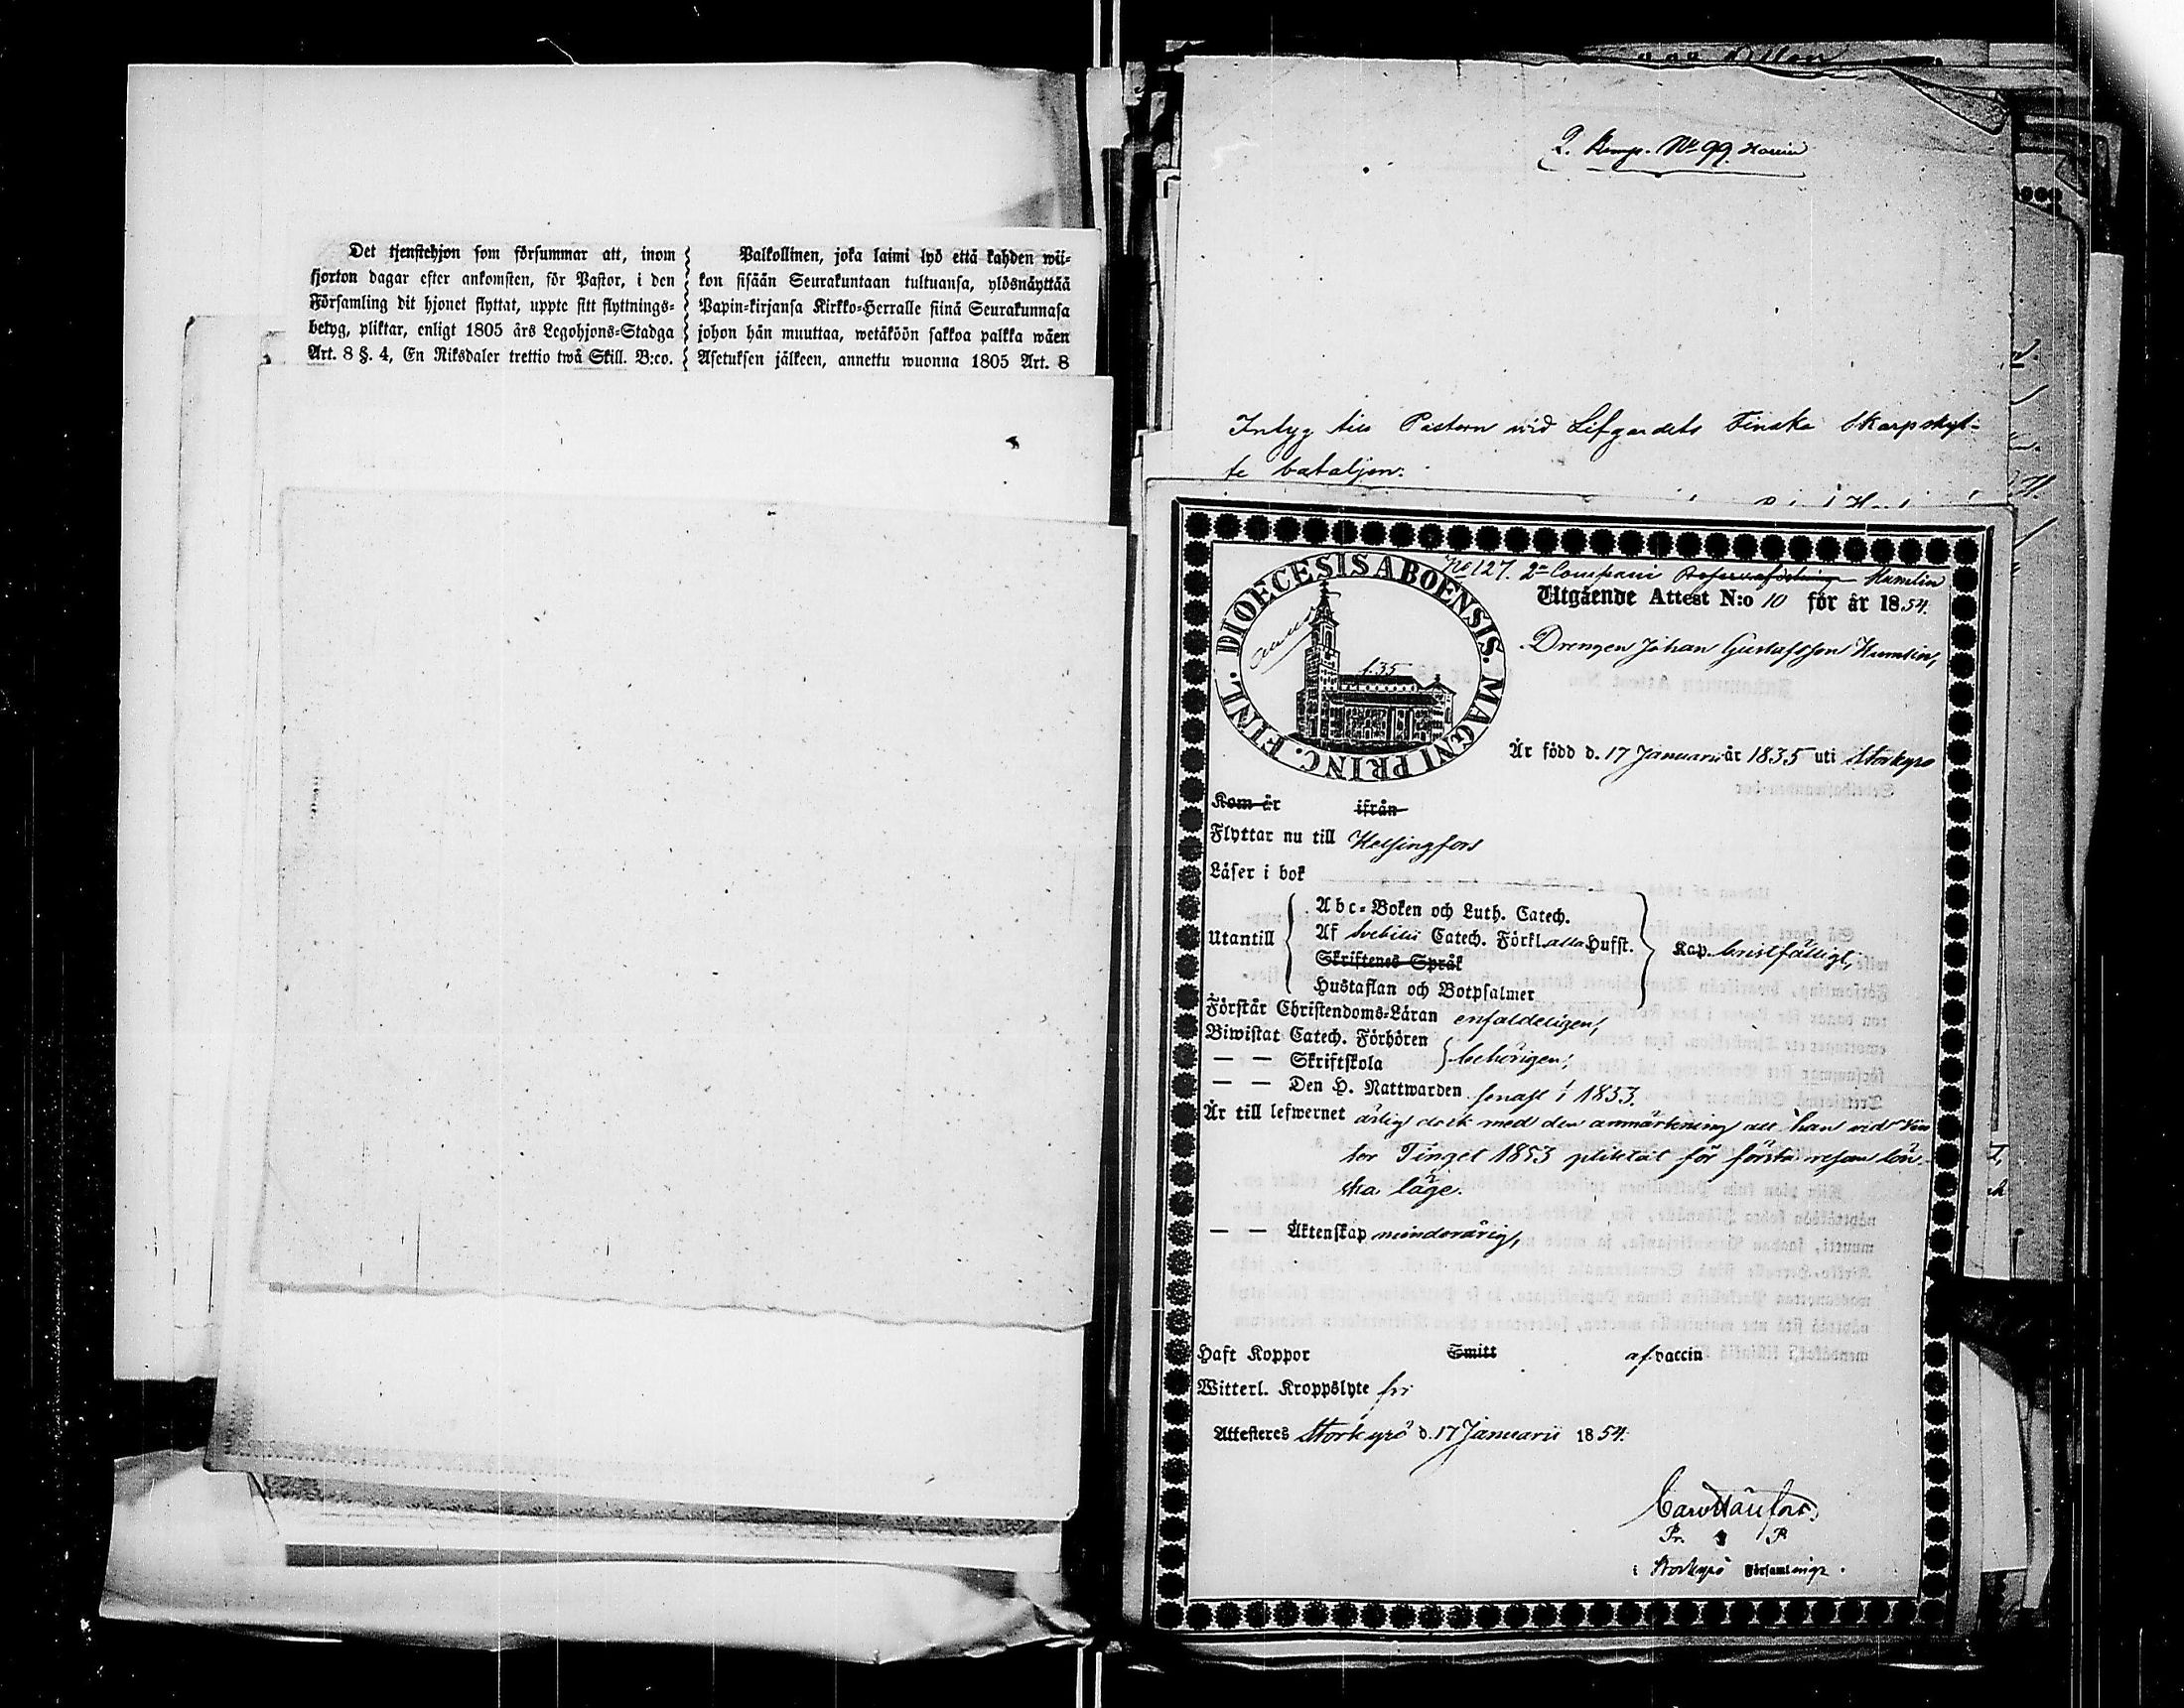 Det tjenstehjon som försummar att, inom
fjorton dagar efter ankomsten, för Pastor, i den
Församling dit hjonet flyttat, uppte sitt flyttnings-
betyg, pliktar, enligt 1805 års Legohjons-Stadga
Art. 8 §. 4, En Riksdaler trettio twå Skill. B:co.
Palkollinen, joka laimi lyö että kahden wii-
kon sisään Seurakuntaan tultuansa, ylösnäyttää
Papin-kirjansa Kirkko-Herralle siinä Seurakunnasa
johon hän muuttaa, wetäköön sakkoa palkka wäen
Asetuksen jälkeen, annettu wuonna 1805 Art. 8
2. Komp. No 99
Intyg till Pastorn wid Lifgardets Finska Skarpskyt-
te bataljon.
DIOECESIS ABOENSIS. MAGNI PRINC. FINL.
No 127. 2a Compani Humlin
Utgående Attest N:o 10 för år 1854.
Drengen Johan Gustafsson Humlin,
135
Är född d. 17 Januarii år 1835 uti Storkyro
Kom år ifrån
Flyttar nu till Helsingfors
Läser i bok
Utantill
Abc-Boken och Luth. Catech.
Af Svebilii Catech. Förkl. alla Hufst.
Skriftenes Språk
Hustaflan och Botpsalmer
Kap. bristfälligt,
Förstår Christendoms-Läran enfaldeligen,
Biwistat Catech. Förhören
— — Skriftskola behörigen,
— — Den H. Nattwarden senast i 1853.
Är till lefwernet ärlig dock med den anmärkning att han vid Vin
ter Tinget 1853 pliktat för första resan lön
ska läge.
— — Äktenskap minderårig,
Haft Koppor Smitt af vaccin
Witterl. Kroppslyte fri
Attesteres Storkyrö d. 17 Januarii 1854.
i Storkyrö Församling.